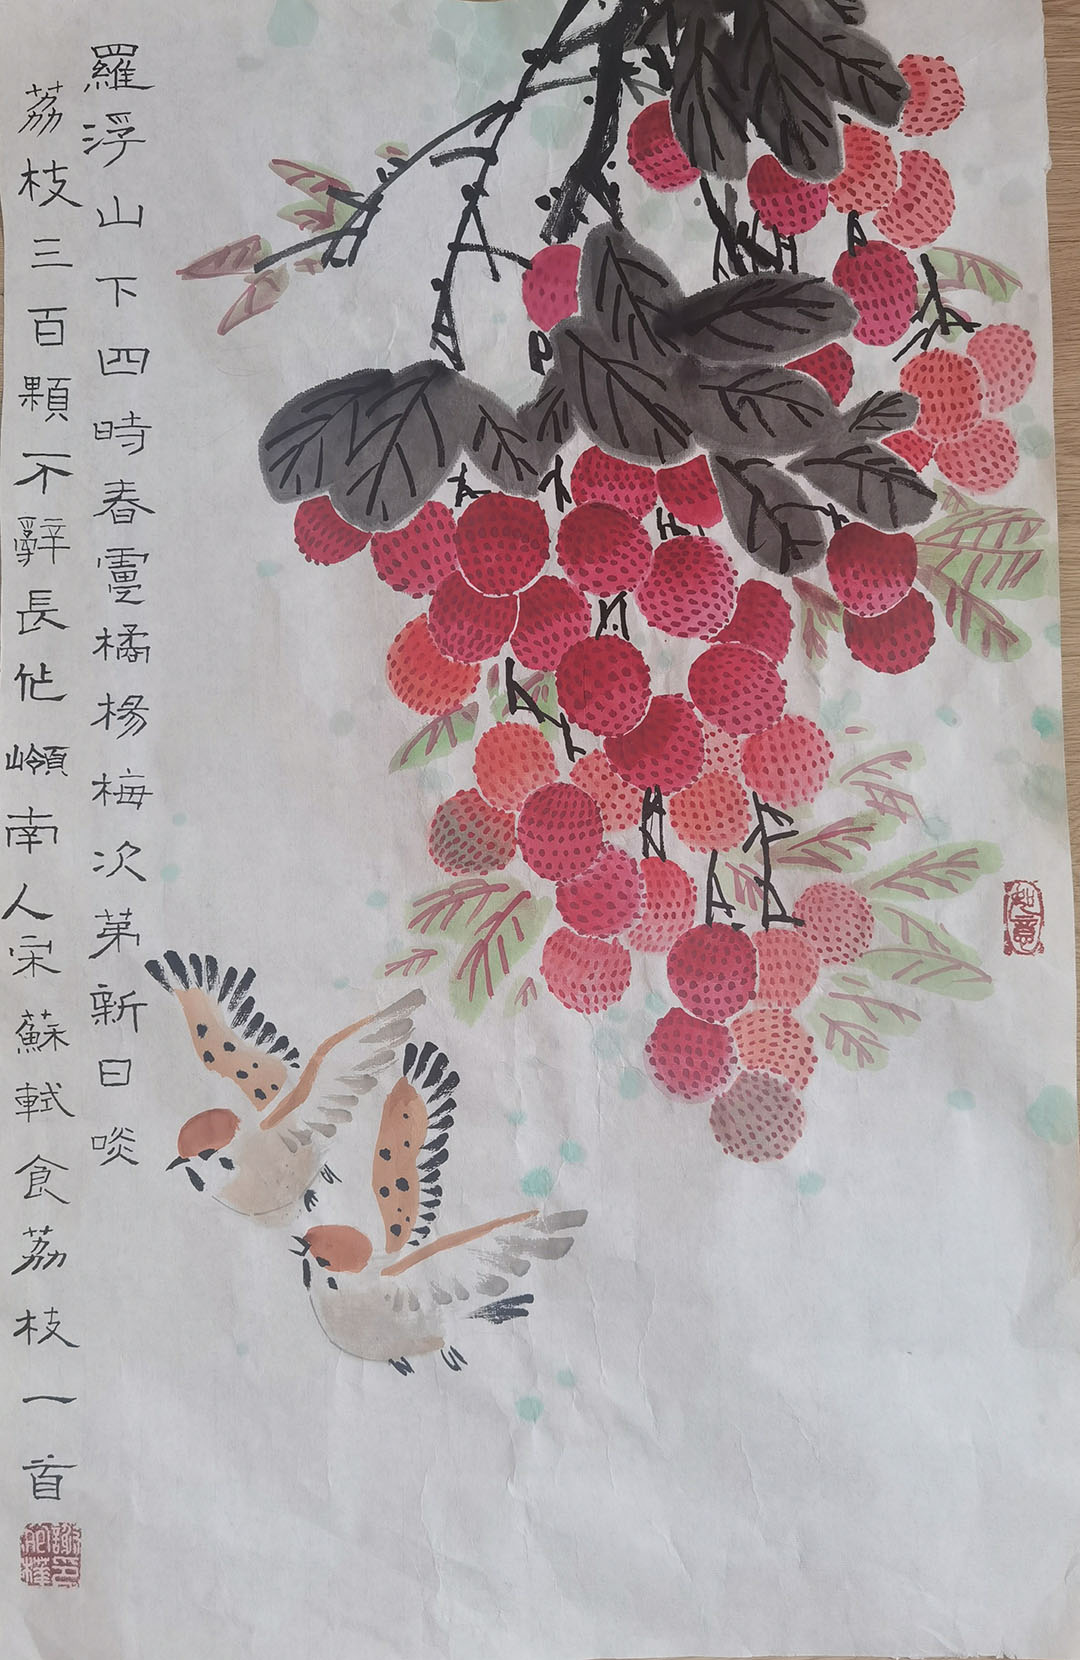 羅浮山下四時春盧橘楊梅次第新日啖
荔枝三百顆不辭長作嶺南人宋蘇軾食荔枝一首
如意